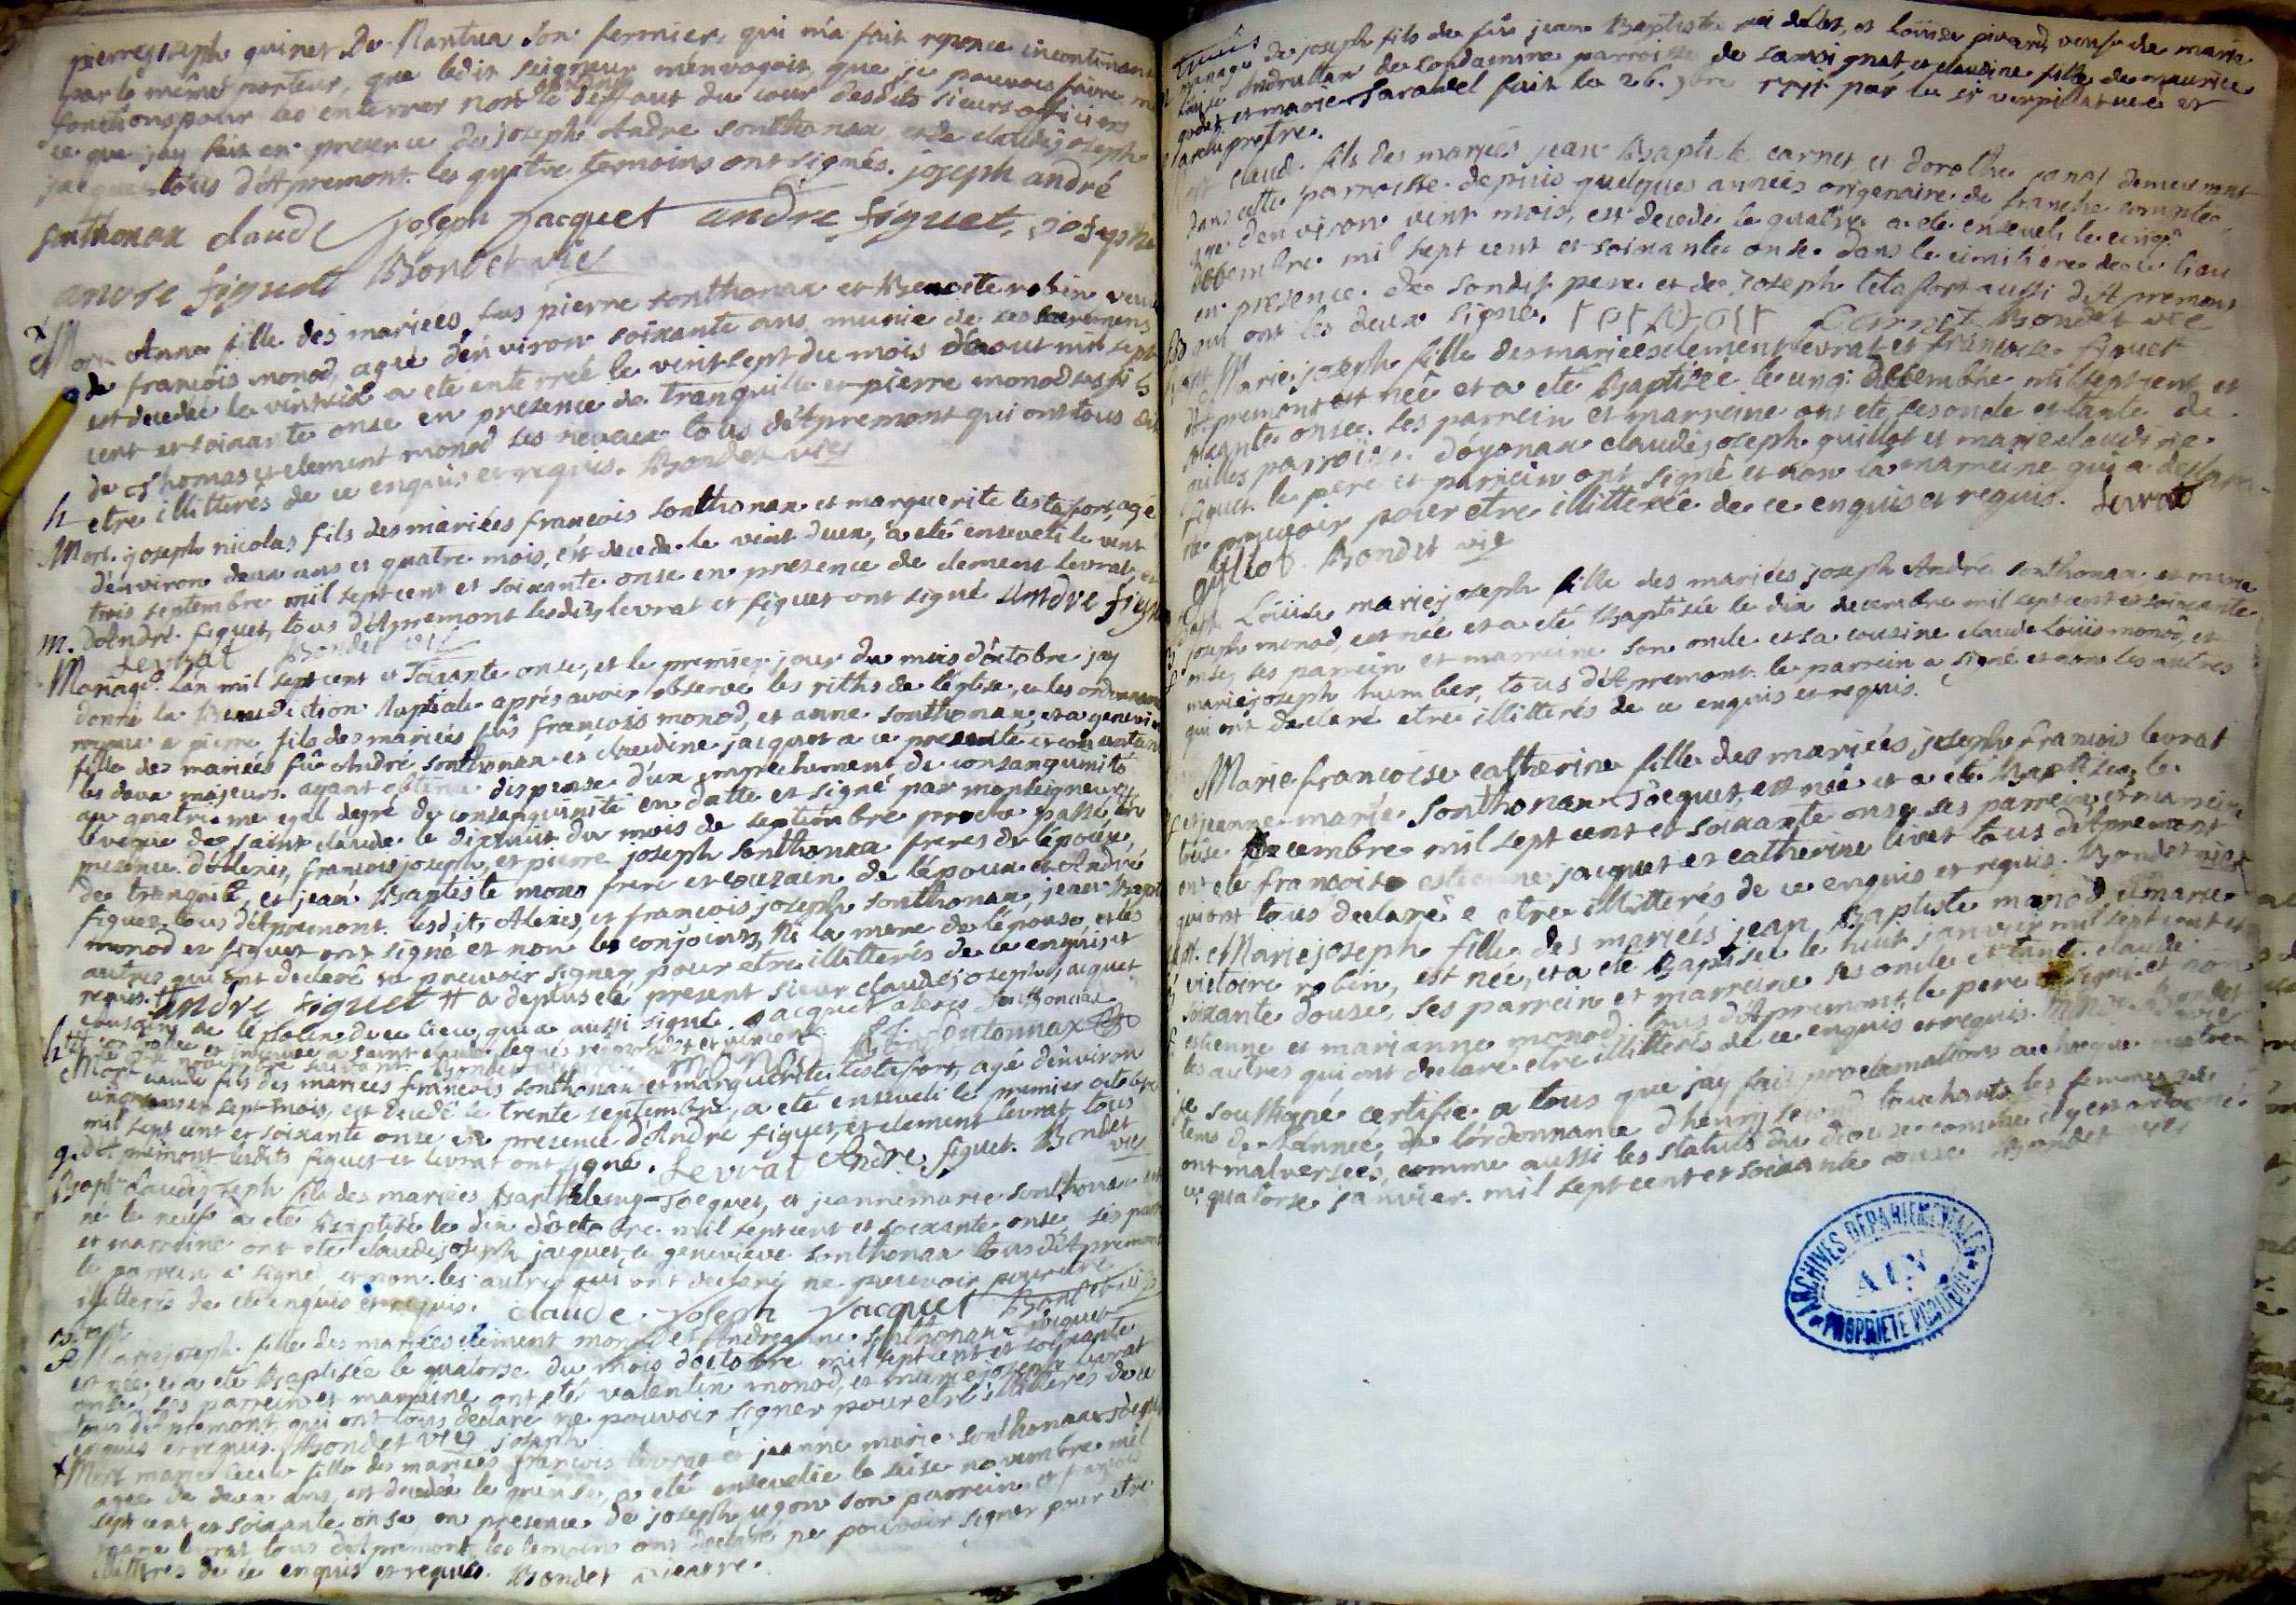 pierrejoseph guinet De Nantua son fermier, qui m'a fait reponce incontinant
par le même porteur, que ledit seigneur m'envoyoit, que je pouvois faire
fonctions pour les enterrer nonobstant le deffaut du cour desdits sieurs officiers
ce que jay fait en presence de joseph André sonthonax et de claudejoseph
jacquet tous d'Apremont. les quatre temoins ont signés. joseph andré
sonthonax claude joseph jacquet andre figuet, joseph
andre figuet Bondet vic
Mort Anne fille des mariées feus pierre sonthonax et Benoite robin veuve
de francois monod, agée d'environ soixante ans munie de ses sacremens
est decedée le vintsix a ete enterrée le vint sept du mois d'aout mil sept
cent et soixante onse en presence de tranquille et pierre monod ses fils
de Thomas et clement monod ses neveux tous d'Apremont qui ont tous dit
etre illitterés de ce enquis et requis. Bondet vic
Mort. joseph nicolas fils des mariées francois sonthonax et marguerite testafort, agé
d'environ deux ans et quatre mois, est decede le vint deux, a eté enseveli le vint
trois septembre mil sept cent et soixante onse en presence de clement levrat, et
d'André figuet, tous d'Apremont lesdits levrat et figuet ont signé andre figuet
levrat Bondet vic
Mariage. L'an mil sept cent et soixante onse, et le premier jour du mois d'octobre jay
donné la Benediction Nuptiale aprés avoir observé les riths de l'église, et les ordonnances
royaux a pierre fils des mariées fûs francois monod, et anne sonthonax, et a genevieve
fille des mariées fûs André sonthonax et claudine jacquet a ce presente et consentante
les deux majeurs. ayant obtenu dispense d'un empechement de consanguinité
au quatrieme egal degré de consanguinité en datte et signé par monseigneur
l'eveque de saint claude le dixhuit du mois de septembre proche passé, en
presence d'Alexis, francoisjoseph, et pierre joseph sonthonax freres de l'épouse,
de tranquille, et jean Baptiste monod frere et cousin de l'époux et André
figuet tous d'Apremont. lesdits Alexis, et francois joseph sonthonax, jean Bapt
monod et figuet ont signé et non les conjoints, Ni la mere de l'épouse, et les
autres qui ont declaré ne pouvoir signer pour etre illitterés de ce enquis et
requis. andre figuet # a depuis eté present sieur claudejoseph jacquet
qui a aussi signé. jacquet alexis sonthonax
Mort claude fils des mariées francois sonthonax et marguerite testafort, agé d'environ
sept mois, est decedé le trente septembre, a ete enseveli le premier octobre
mil sept cent et soixante onse en presence d'André figuet, et clement levrat, tous
d'Apremont lesdits figuet et levrat ont signé. Levrat Andre figuet. Bondet
vic
Bapt. claudejoseph fils des mariées Barthelemy jocquet, et jeannemarie sonthonax est
né le neuf a eté Baptisé le dix d'octobre mil sept cent et soixante onse, ses parrein
et marreine ont eté claudejoseph jacquet, et genevieve sonthonax tous d'Apremont
le parrein a signé et non les autres qui ont declaré ne pouvoir pour etre
illitterés de ce enquis et requis. claude joseph jacquet Bondet vic
Bapt
Mariejoseph fille des mariées clement monod et Andreanne sonthonax
est née, et a eté Baptisée le quatorse du mois d'octobre mil sept cent et soixante
onse, ses parrein et marreine ont eté valentin monod, et mariejoseph levrat
tous d'Apremont, qui ont tous declaré ne pouvoir signer pour etre illitterés de ce
enquis et requis. Bondet vic joseph
Mort marie cecile fille des mariées francois levrat et jeanne marie sonthonax
agée de deux ans, est decedée le quinse, a eté ensevelie le seise novembre mil
sept cent et soixante onse en presence de joseph ugon son parrein et francois
levrat, tous d'Apremont, les temoins ont declaré ne pouvoir signer pour etre
illitterés de ce enquis et requis. Bondet vicaire.
mariage de joseph fils de fûs jean Baptiste et louise pirard, veuf de marie
louise Andrullan de Condamine parroisse de samognat et claudine fille de maurice
godet et marie sarandel fait le 26. 9bre 1771 par le sr verpillat curé et
archiprétre.
Mort claude fils des mariés jean Baptiste carnet et dorothe demeurant
dans cette parroisse depuis quelques années originaire de franche compté,
age d'environ vint mois, est decedé le quatre a ete enseveli le cinq
decembre mil sept cent et soixante onse dans le cimitiere de ce lieu
en presence de sondit pere et de joseph tetafort aussi d'Apremont
qui ont les deux signé. Carnet Bondet vic
Bapt Marie joseph fille des mariées clement levrat et francoise figuet
d'Apremont est née et a eté Baptisée le decembre mil sept cent et
soixante onse. ses parrein et marreine ont eté ses oncle et tante de
parroisse d'oyonax claudejoseph guillot et marie claudine
figuet. le pere et parrein ont signé et non la marreine qui a declaré
ne pouvoir pour etre illitterée de ce enquis et requis. Levrat
guilliot Bondet vic
Bapt. Loüise mariejoseph fille des mariées joseph André sonthonax et marie
joseph monod, est née et a eté Baptisée le dix decembre mil sept cent et soixante
onse, ses parrein et marreine son oncle et sa cousine claude Loüis monod, et
mariejoseph humber, tous d'Apremont. le parrein a signé et non les autres
qui ont declaré etre illitterés de ce enquis et requis.
Marie francoise catherine fille des mariées joseph francois levrat
et jeanne marie Sonthonax jocquet, est née et a eté Baptisée le
treise Decembre mil sept cent et soixante onse, ses parrein et marreine
ont eté francois estienne jacquet et catherine livet tous d'Apremont
qui ont tous declaré etre illitterés de ce enquis et requis. Bondet vic
Bapt. Mariejoseph fille des mariées jean Baptiste monod, et marie
victoire robin, est née, et a eté Baptisée le huit janvier mil sept cent et
soixante douse, ses parrein et marreine ses oncle et tante claude
estienne et marianne monod. tous d'Apremont, le pere a signé et non
les autres qui ont declaré etre illitterés de ce enquis et requis. Monod Bondet
vic
je soussigné certifie a tous que jay fait proclamations a chaque quatre
tems de l'année, de l'ordonnance d'henry second touchant les femmes qui
ont malversées, comme aussi les statuts du diocese comme il y est ordonné.
ce quatorse janvier mil sept cent et soixante douse Bondet vic
ARCHIVES DÉPARTEMENTALES
AIN
PROPRIÉTÉ PUBLIQUE